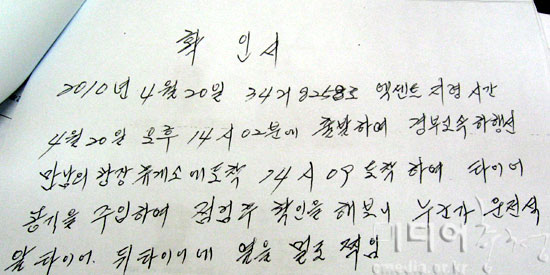 확인서
2010년 4월 20일 34거8258호 엑센트 차량 시간
4월 20일 오후 14시 02분에 출발하여 경부고속하행선
만남의 광장 휴게소에 도착 14시 09 도착하여 타이어
공기을 주입하여 점검후 확인을 해보니 누군가 운전석
앞타이어, 뒤타이어에 열을 찍음
미디어충청
cmedia.or.kr